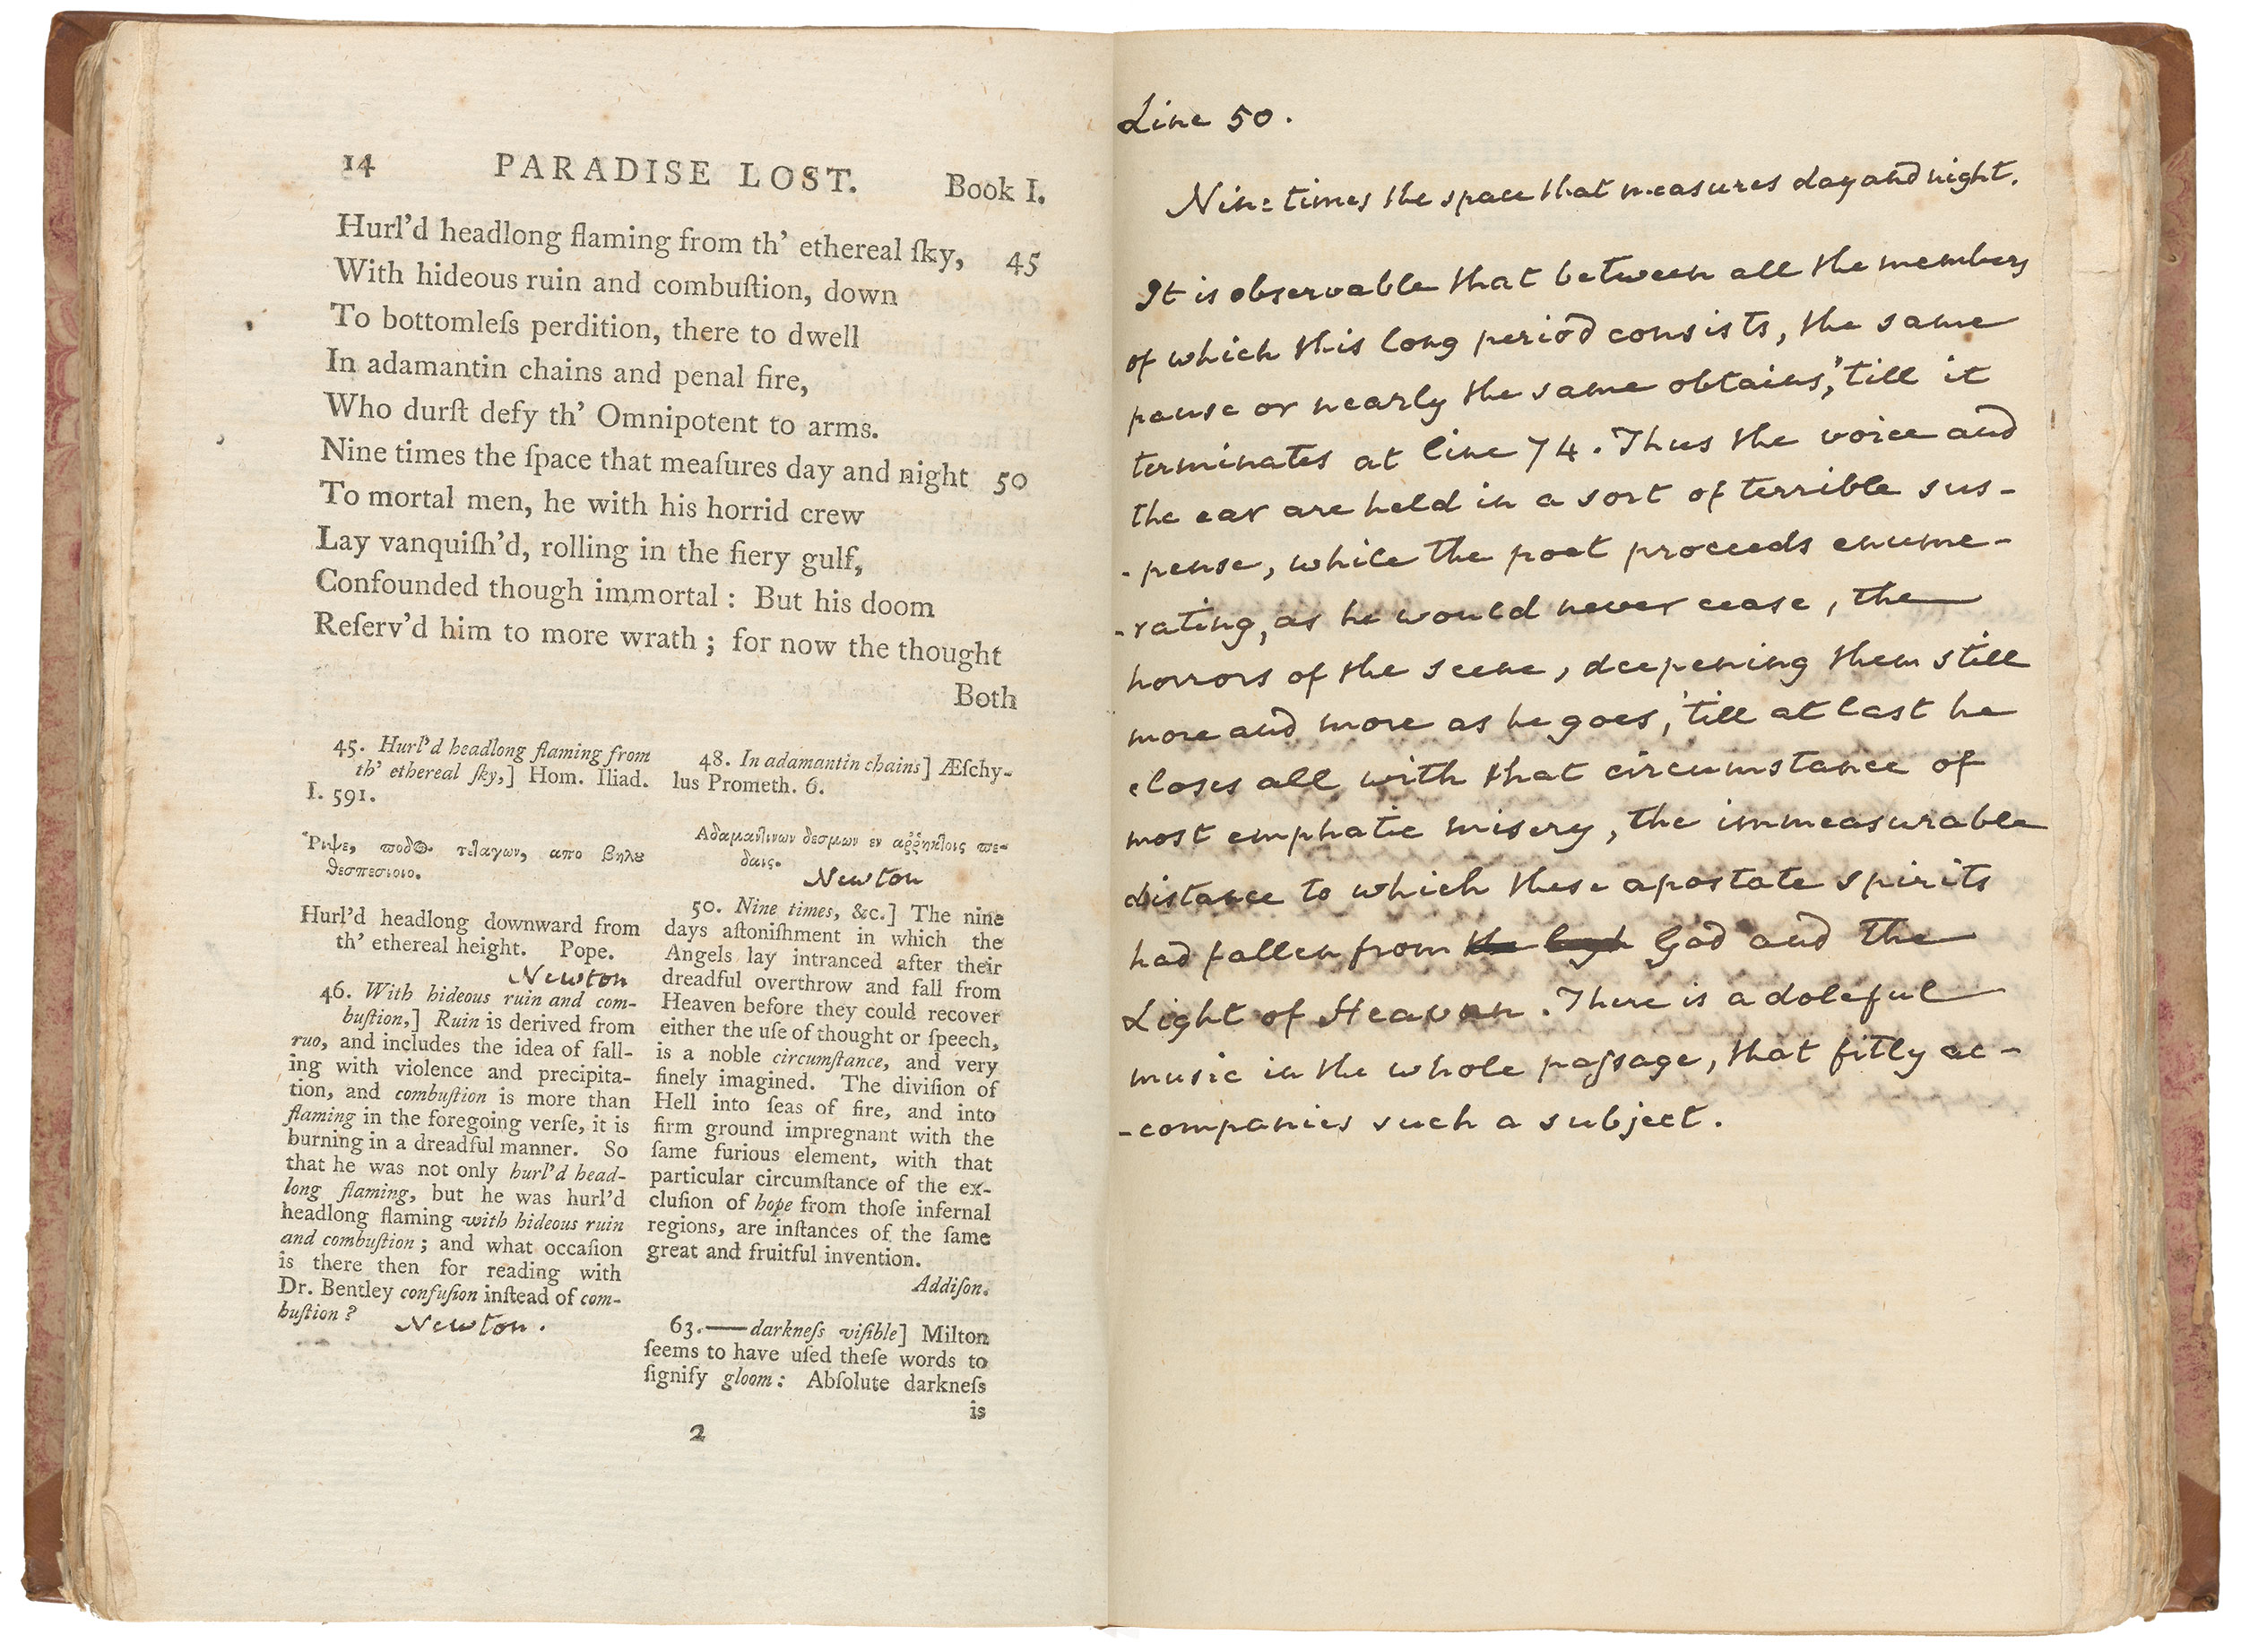 14 PARADISE LOST. Book I.
Hurl'd headlong flaming from th' ethereal ſky, 45
With hideous ruin and combuſtion, down
To bottomleſs perdition, there to dwell
In adamantin chains and penal fire,
Who durſt defy th' Omnipotent to arms.
Nine times the ſpace that meaſures day and night 50
To mortal men, he with his horrid crew
Lay vanquiſh'd, rolling in the fiery gulf,
Confounded though immortal : But his doom
Reſerv'd him to more wrath ; for now the thought
Both
45. Hurl'd headlong flaming from
th' ethereal ſky,] Hom. Iliad.
I. 591.
Ῥιψε, ποδος τεταγων, απο βηλου
θεσπεσιοιο.
Hurl'd headlong downward from
th' ethereal height. Pope.
Newton
46. With hideous ruin and com-
buſtion,] Ruin is derived from
ruo, and includes the idea of fall-
ing with violence and precipita-
tion, and combuſtion is more than
flaming in the foregoing verſe, it is
burning in a dreadful manner. So
that he was not only hurl'd head-
long flaming, but he was hurl'd
headlong flaming with hideous ruin
and combuſtion ; and what occaſion
is there then for reading with
Dr. Bentley confuſion inſtead of com-
buſtion ?
Newton.
48. In adamantin chains] Æſchy-
lus Prometh. 6.
Αδαμαντινων δεσμων εν αρρηκτοις πε-
δαις.
Newton
50. Nine times, &c.] The nine
days aſtoniſhment in which the
Angels lay intranced after their
dreadful overthrow and fall from
Heaven before they could recover
either the uſe of thought or ſpeech,
is a noble circumſtance, and very
finely imagined. The diviſion of
Hell into ſeas of fire, and into
firm ground impregnant with the
ſame furious element, with that
particular circumſtance of the ex-
cluſion of hope from thoſe infernal
regions, are inſtances of the ſame
great and fruitful invention.
Addiſon.
63.—darkneſs viſible] Milton
ſeems to have uſed theſe words to
ſignify gloom : Abſolute darkneſs
is
2
Line 50.
Nine times the space that measures day and night.
It is observable that between all the members
of which this long period consists, the same
pause or nearly the same obtains, 'till it
terminates at line 74. Thus the voice and
the ear are held in a sort of terrible sus-
-pense, while the poet proceeds enume-
-rating, as he would never cease, the
horrors of the scene, deepening them still
more and more as he goes, 'till at last he
closes all with that circumstance of
most emphatic misery, the immeasurable
distance to which these apostate spirits
had fallen from the God and the
Light of Heaven. There is a doleful
music in the whole paſsage, that fitly ac-
-companies such a subject.